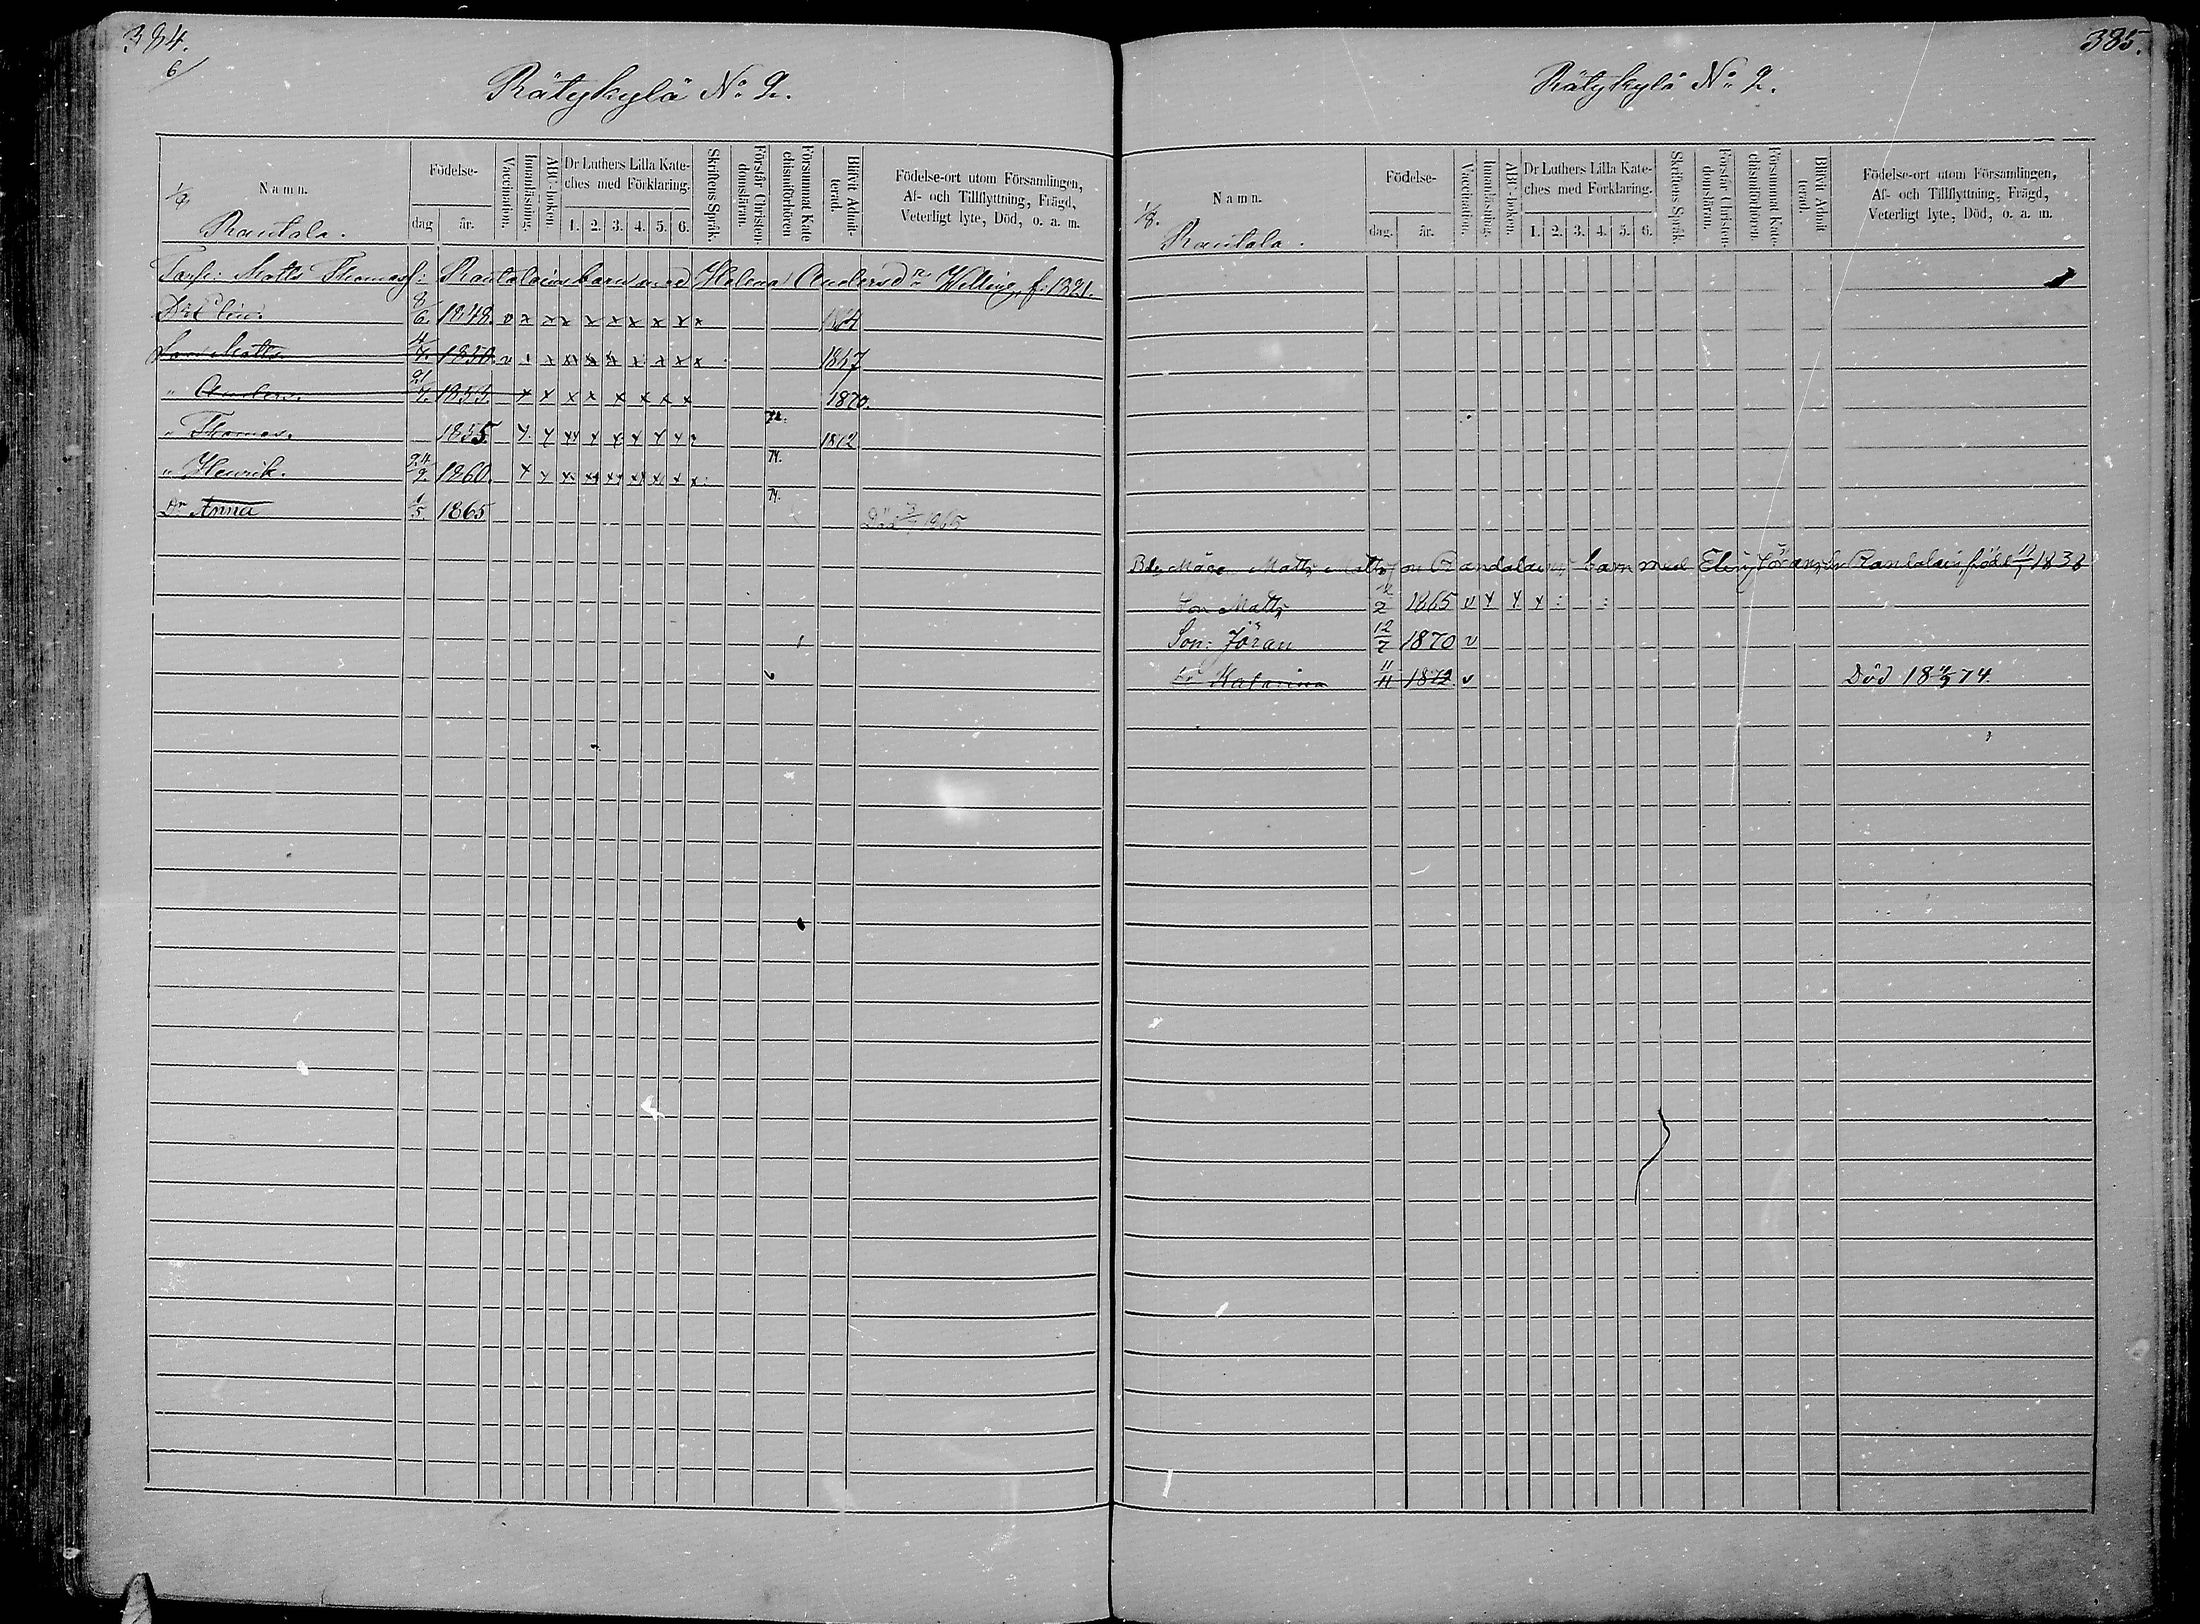 384.
6/
Rätykylä No 2.
Namn.
Födelse-
dag
år.
Vaccination.
Innanläsning.
ABC-boken
Dr Luthers Lilla Kate-
ches med Förklaring.
1. 2. 3. 4. 5. 6.
Skriftens Språk.
Förstår Christen-
domsläran.
Försummat Kate
chismiförhören.
Blifvit Admit-
terad.
Födelse-ort utom Församlingen,
Af- och Tillflyttning, Frägd,
Veterligt lyte, Död, o. a. m.
Rautala.
Matts Thomass: Rautalains barn med Helena Andersdr Villing, f. 1821.
Dr Elin. 8/6. 1848. v x x x x x x x x x
Son Matts 4/7. 1850. v x x x x x x x x x 1867
" Anders. 21/7. 1853. x x x x x x x x 1870.
" Thomas. 1855 x x x x x x x x 72. 1872
" Henrik. 24/9. 1860. x x x x x x x x x 74.
Dr Anna 1/5. 1865 74. Död 1865
385.
Rätykylä No 2.
Namn.
Födelse-
dag.
år.
Vaccination.
Innanläsning.
ABC-boken.
Dr Luthers Lilla Kate-
ches med Förklaring.
1. 2. 3. 4. 5. 6.
Skriftens Språk.
Förstår Christen-
domsläran.
Försummat Kate-
chismiförhören.
Blifvit Admit
terad.
Födelse-ort utom Församlingen,
Af- och Tillflyttning, Frägd,
Veterligt lyte, Död, o. a. m.
Rautala.
Matts Mattsson Randalains barn med Elin Jöransdr Randalain född 1838
Son Matts 1865 v x x x
Son: Jöran 12/7 1870 v
Dr Katarina 11/11 1872. v Död 18 74.